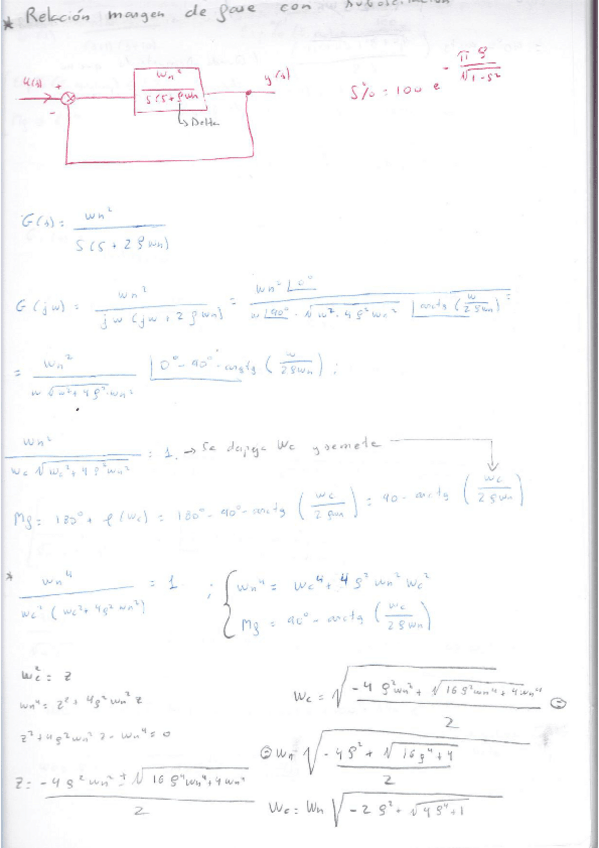 * Relación margen de fase con sobreoscilación
u(s) + - wn² / S(S+ρwn) y(s)
↳ Delta
S% = 100 e^(-πρ/√(1-ρ²))
G(s) = wn² / S(S+2ρwn)
G(jw) = wn² / jw(jw+2ρwn) = wn² ∠0° / w∠90° · √(w²+4ρ²wn²) ∠arctg(w/2ρwn) =
= wn² / w√(w²+4ρ²·wn²) ∠0°-90°-arctg(w/2ρwn) ;
wn² / wc√(wc²+4ρ²wn²) = 1. → Se despeja wc y se mete
Mg = 180° + φ(wc) = 180° - 90° - arctg(wc/2ρwn) = 90 - arctg(wc/2ρwn)
* wn⁴ / wc²(wc²+4ρ²wn²) = 1 ; { wn⁴ = wc⁴ + 4ρ²wn²wc²
Mg = 90° - arctg(wc/2ρwn)
wc² = z
wn⁴ = z² + 4ρ²wn²z
z² + 4ρ²wn²z - wn⁴ = 0
z = -4ρ²wn² ± √(16ρ⁴wn⁴+4wn⁴) / 2
wc = √(-4ρ²wn² + √(16ρ²wn⁴+4wn⁴) / 2) =
= wn √(-4ρ² + √(16ρ⁴+4) / 2)
wc = wn √(-2ρ² + √(4ρ⁴+1))